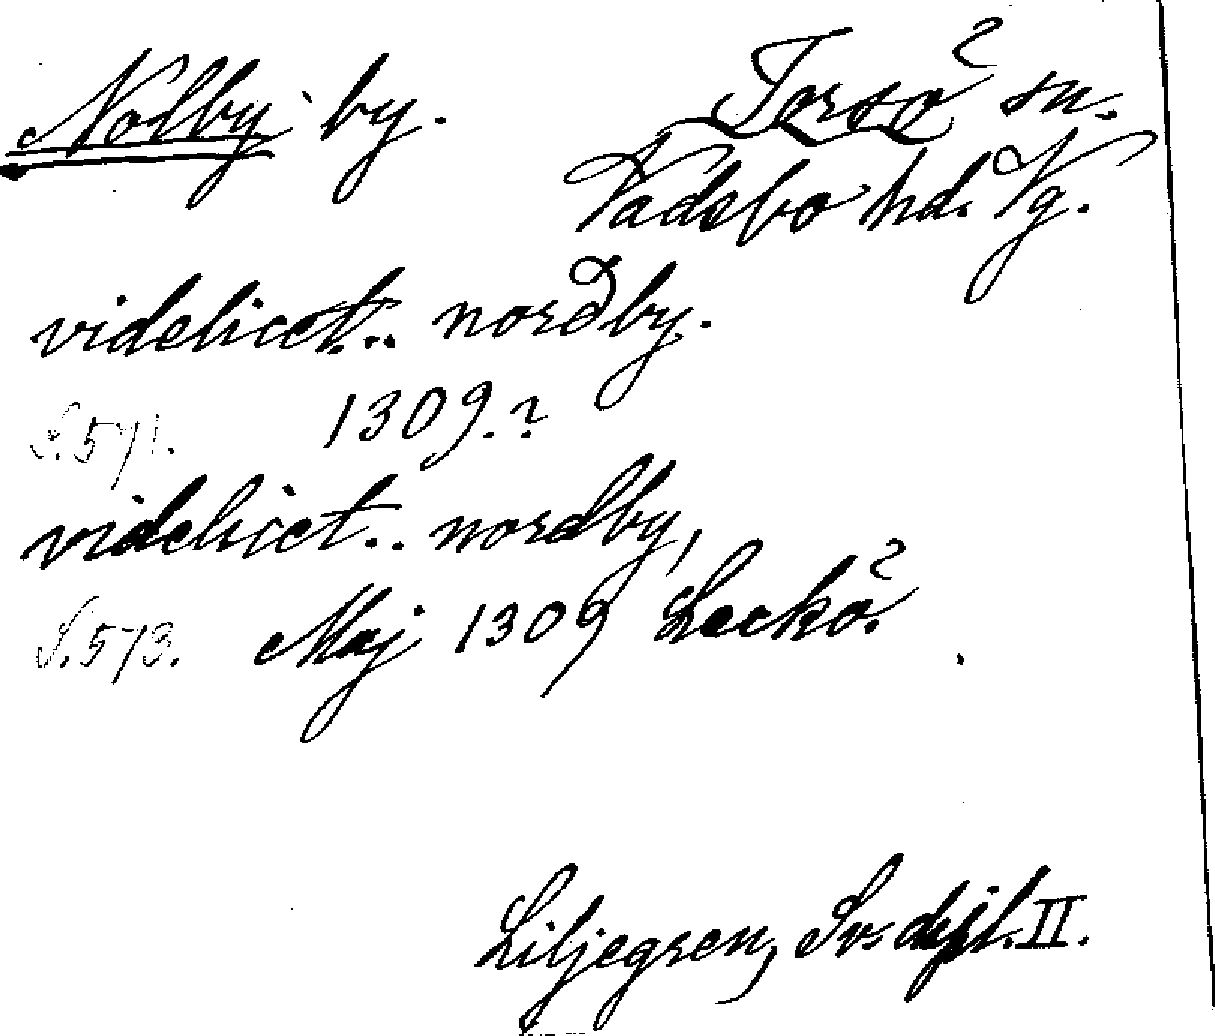 Nolby by. Torsö sn.
Vadsbo hd. Vg.
videlicet.. norđby.
S. 571. 1309.?
videlicet.. nordby,
S. 573. Maj 1309 Leckö.
Liljegren, Sv. dipl. II.